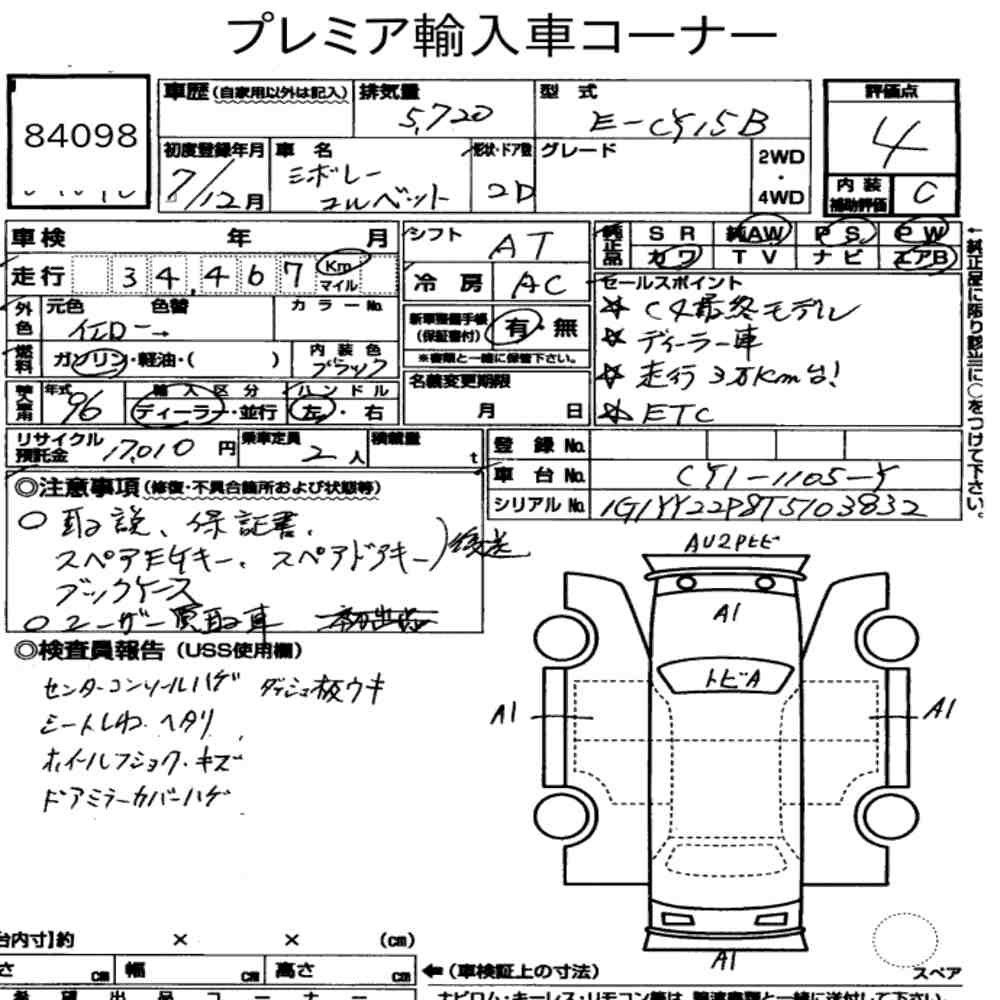 プレミア輸入車コーナー
84098
車歴(自家用以外は記入)
排気量
5,720
型式
E-CY15B
評価点
4
内装補助評価
C
初度登録年月
7/12月
車名
シボレー
コルベット
形状・ドア数
2D
グレード
2WD
・
4WD
車検 年 月
走行 34,467 Km マイル
シフト
AT
冷房
AC
純正品
SR 純AW PS PW
カワ TV ナビ エアB
←純正品に限り該当に○をつけて下さい。
外色
元色 色替
イエロー→
カラーNo.
燃料
ガソリン・軽油・( )
内装色
ブラック
新車整備手帳
(保証書付)
有・無
※書類と一緒に保管下さい。
セールスポイント
☆ C4最終モデル
☆ ディーラー車
☆ 走行3万Km台!
☆ ETC
輸入車用
年式
96
輸入区分
ディーラー・並行
ハンドル
左・右
名義変更期限
月 日
リサイクル預託金
17,010円
乗車定員
2人
積載量
t
登録No.
車台No.
CY1-1105-Y
シリアルNo.
1G1YY22P8T5103832
◎注意事項(修復・不具合箇所および状態等)
○ 取説、保証書、
スペアモケキー、スペアドアキー)後送
ブックケース
○ ユーザー買取車 本初出品
◎検査員報告(USS使用欄)
センターコンソールハゲ ダッシュ板ウキ
シートしわ・ヘタリ
ホイールフショク・キズ
ドアミラーカバーハゲ
AU2Pヒビ
A1
トビA
A1
A1
A1
スペア
台内寸]約 × × (cm)
さ cm 幅 cm 高さ cm
←(車検証上の寸法)
希望出品コーナー
ナビロム・キーレス・リモコン等は、譲渡書類と一緒に送付して下さい。